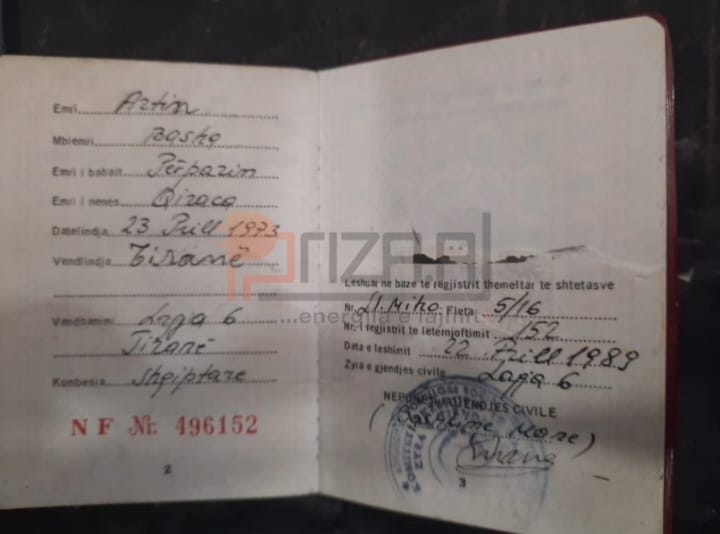 Emri Artin
Mbiemri Basha
Emri i babait Përparim
Emri i nenes Qiraca
Datelindja 23 Prill 1973
Vendlindja Tiranë
Vendbanimi Lagja 6
Tiranë
Kombesia Shqiptare
NF Nr. 496152
2
Priza.al
...energjia e lajmit
Leshuar ne baze te regjistrit themeltar te shtetasve
Nr. Ll. Miho Fleta 5/16
Nr. i regjistrit te leternjoftimit 152
Data e leshimit 22 Prill 1989
Zyra e gjendjes civile Lagja 6
GJENDJES CIVILE
3